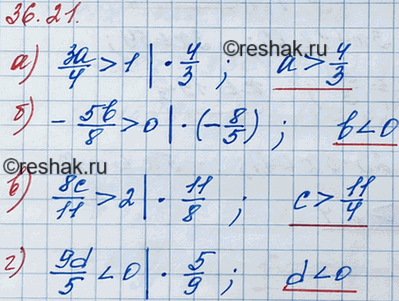 36.21.
а) 3a/4 > 1 | · 4/3 ; a > 4/3
©reshak.ru
б) - 5b/8 > 0 | · (- 8/5) ; b < 0
©reshak.ru
в) 8c/11 > 2 | · 11/8 ; c > 11/4
г) 9d/5 < 0 | · 5/9 ; d < 0
©reshak.ru